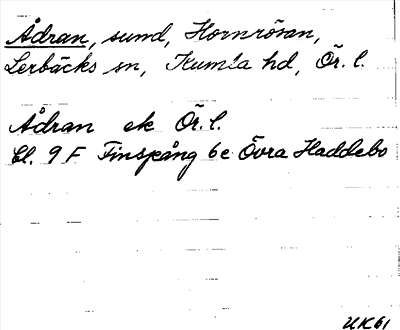 Ådran, sumd, Hornrösan,
Lerbäcks sn, Kumla hd, Ör. l.
Ådran ek Ör. l.
Bl. 9 F Finspång 6e Övra Haddebo
UK61